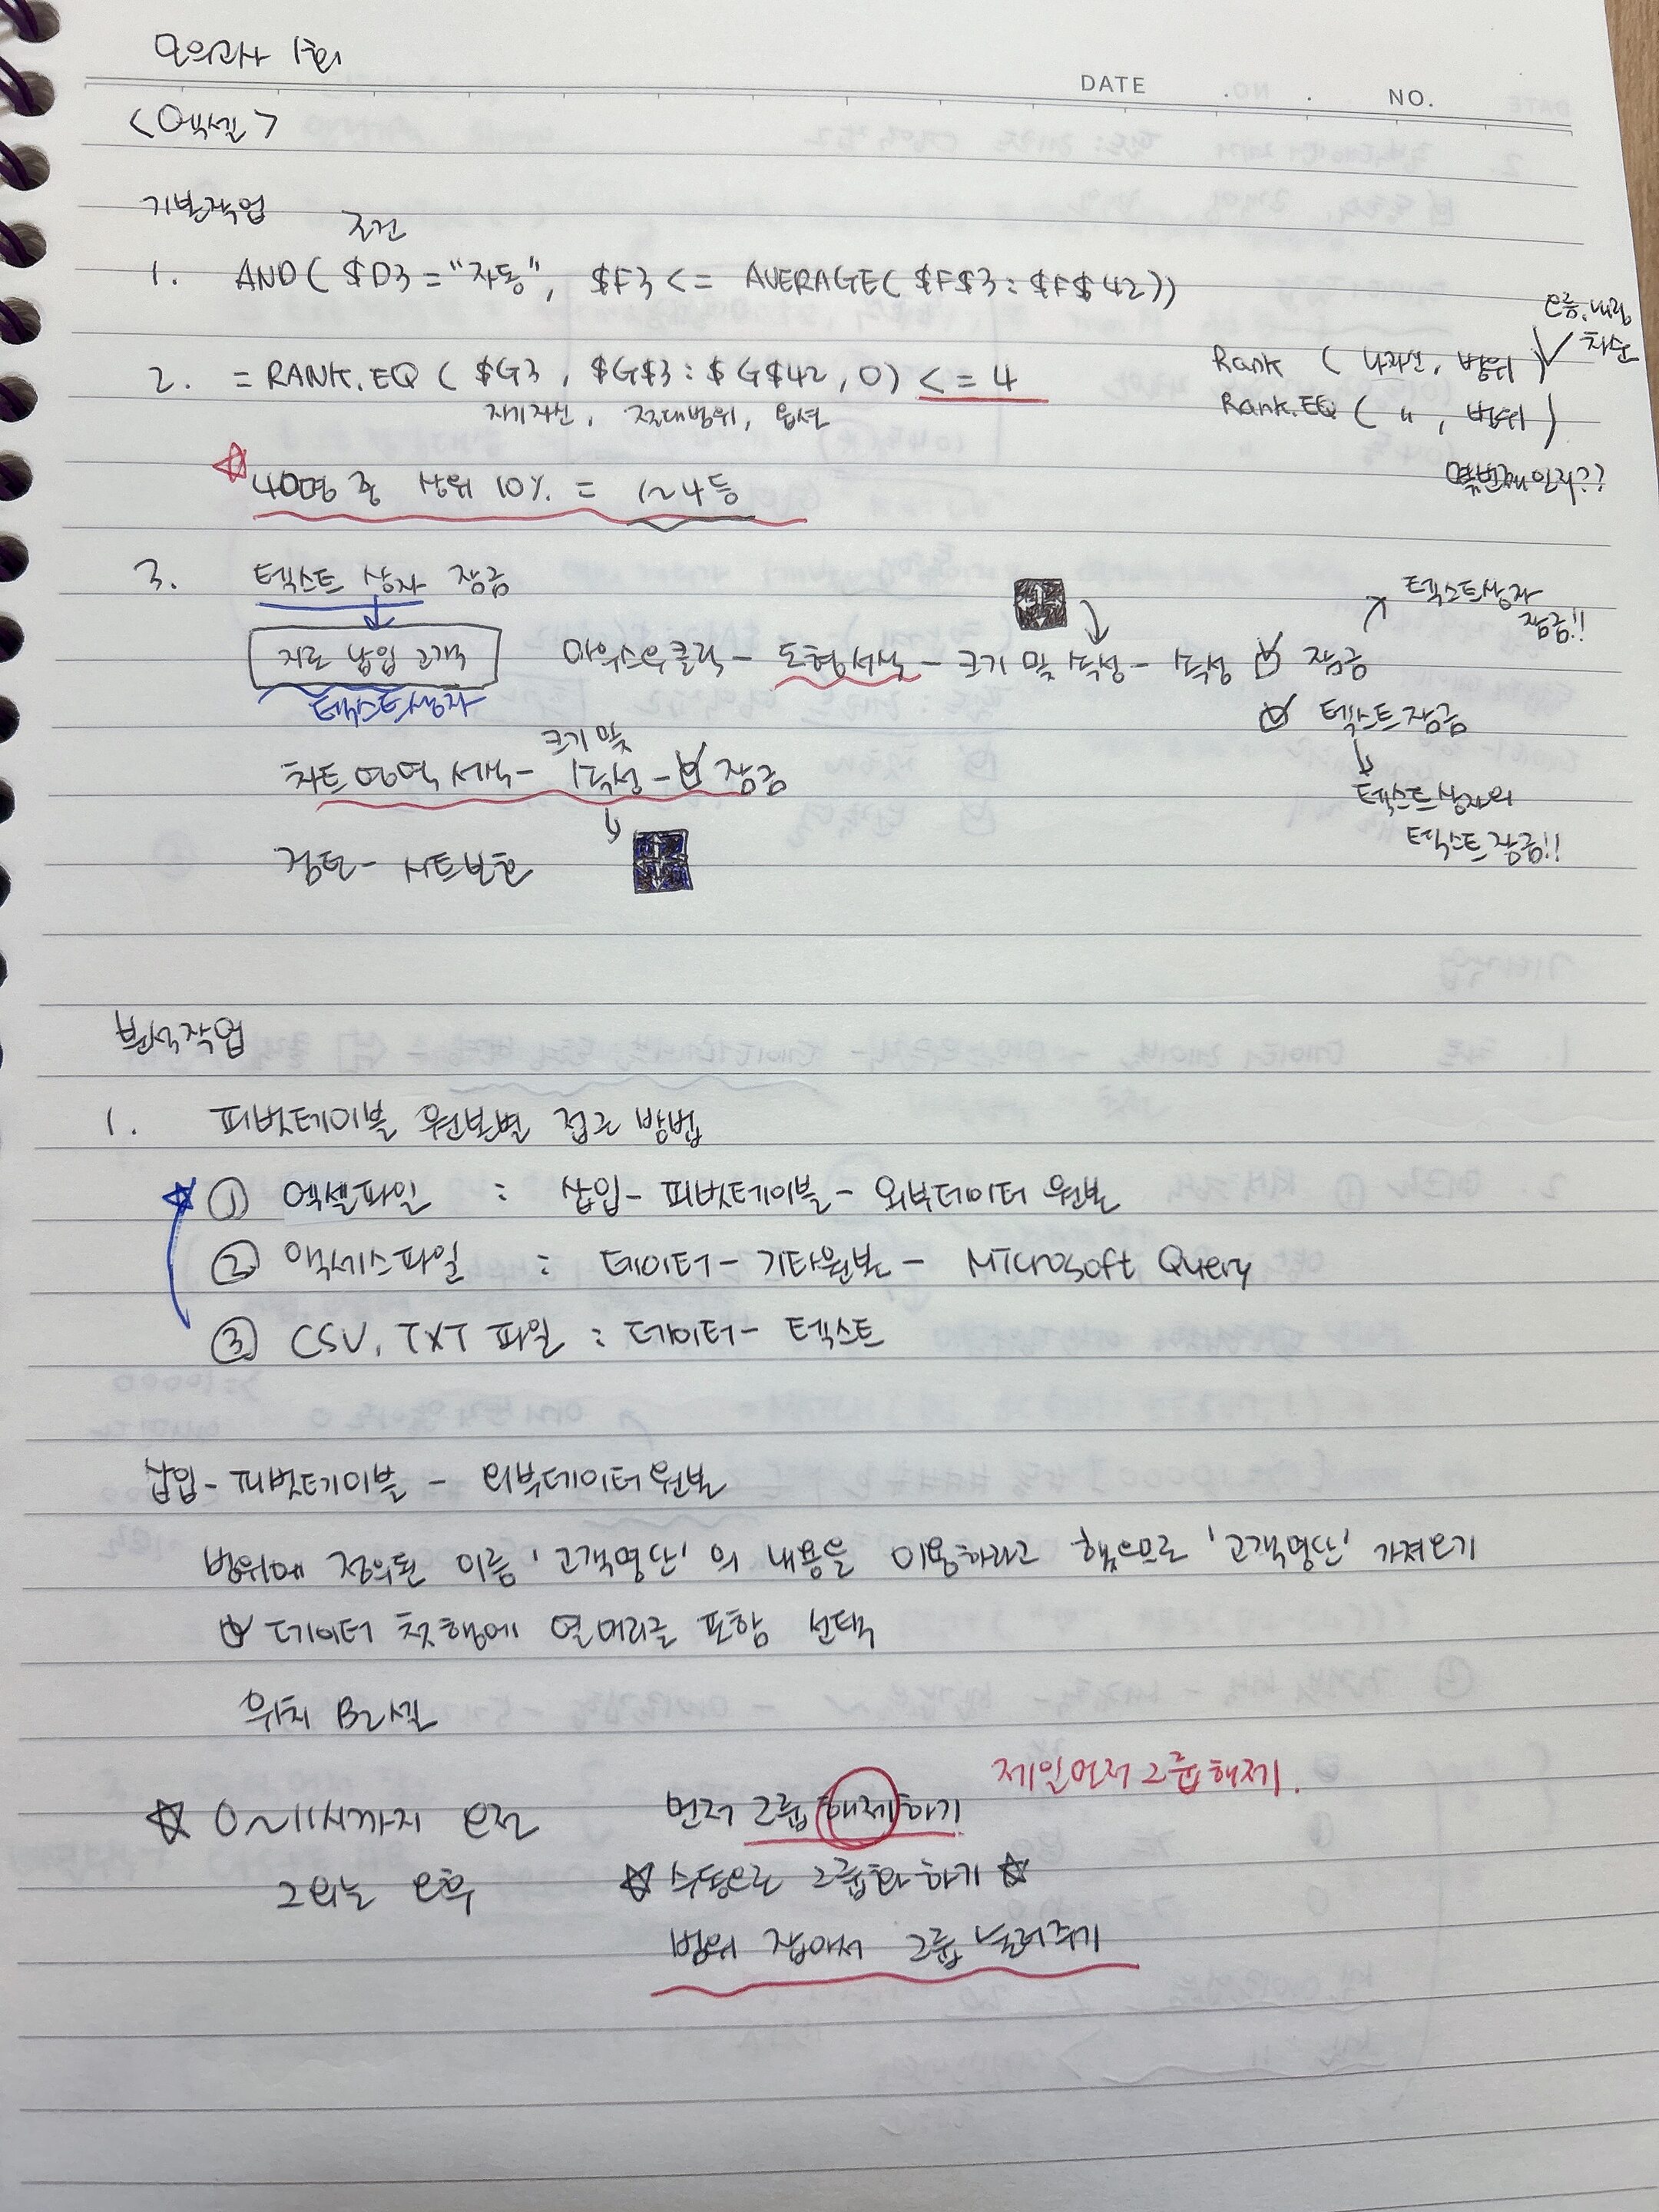 모의고사 1회
DATE . . NO.
<엑셀>
기본작업
조건
1. AND( $D3="자동", $F3<= AVERAGE($F$3:$F$42))
2. =RANK.EQ( $G3, $G$3:$G$42, 0) <=4
자기자신, 절대범위, 옵션
Rank ( 나자신, 범위 )
오름,내림
차순
Rank.EQ ( 〃, 범위 )
몇번째인지??
☆ 40명 중 상위 10% = 1~4등
3. 텍스트 상자 잠금
지로 납입 고객
텍스트상자
마우스우클릭 - 도형서식 - 크기 및 속성 - 속성 ☑ 잠금
텍스트상자
잠금!!
☑ 텍스트잠금
텍스트상자의
텍스트잠금!!
크기 및
차트영역 서식 - 속성 - ☑ 잠금
검토 - 시트보호
분석작업
1. 피벗테이블 원본별 접근 방법
☆ ① 엑셀파일 : 삽입 - 피벗테이블 - 외부데이터 원본
② 액세스파일 : 데이터 - 기타원본 - Microsoft Query
③ CSV, TXT 파일 : 데이터 - 텍스트
삽입 - 피벗테이블 - 외부데이터원본
범위에 정의된 이름 '고객명단'의 내용을 이용하라고 했으므로 '고객명단' 가져오기
☑ 데이터 첫행에 열머리글 포함 선택
위치 B2셀
제일먼저 그룹해제.
☆ 0~11시까지 오전 먼저 그룹해제하기
그외는 오후 ☆ 수동으로 그룹화 하기 ☆
범위 잡아서 그룹 눌러주기